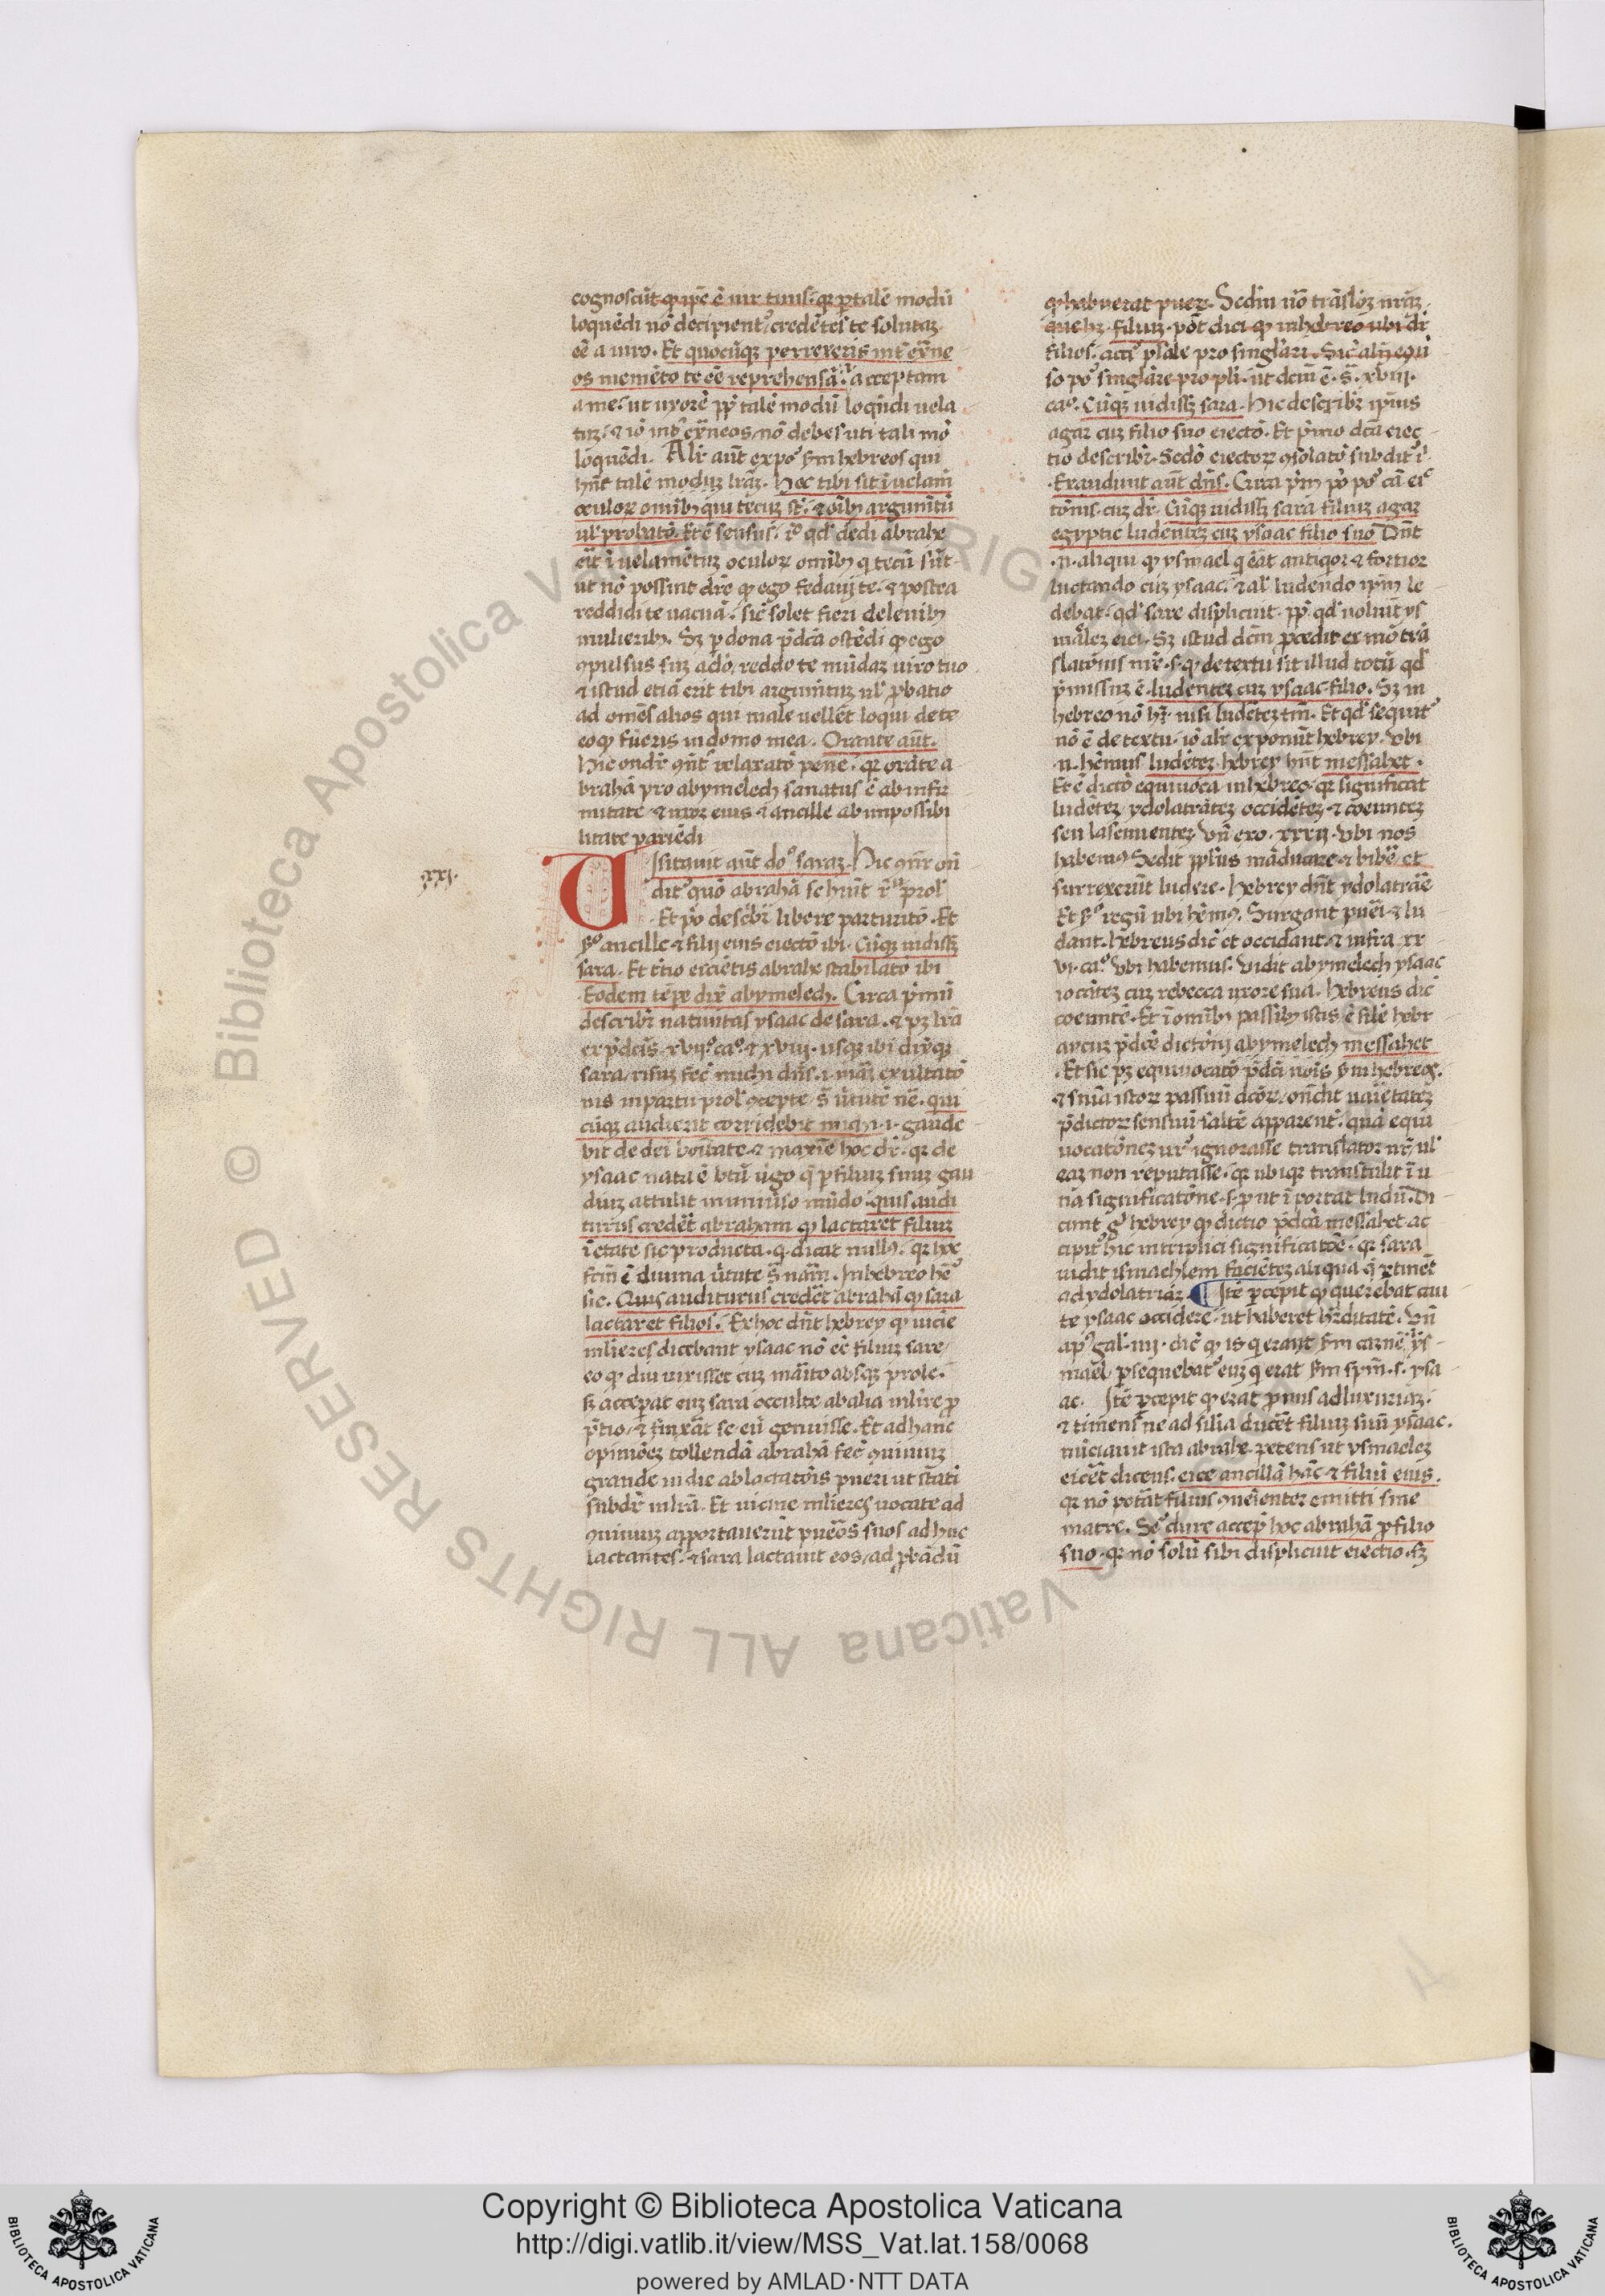 cognoscūt ꝙ ip̄e ē uir tuus. qꝛ ꝑ talē modū
loquēdi nō decipient᷑ credētes te solutaꝫ
eē a uiro. Et quocūqꝫ perrexeris int̄ exne
os memēto te eē reprehensā. acceptam
a me. ut uxorē ꝓp̄ talē modū loqn̄di uela
tuꝫ. ⁊ iō int̄ exneos nō debes uti tali mō
loquēdi. Alit̄ aūt expō fm hebreos qui
hn̄t talē moduꝫ lr̄aꝫ. Hoc tibi sit ī uelam̄
oculoꝝ omībꝫ qui tecuꝫ st̄. ⁊ oībꝫ argum̄tū
ul̓ probatō. Et ē sensus. iᵒ qd̓ dedi abrahe
eīt ī uelamētuꝫ oculoꝝ omībꝫ q̇ tecū sūt
ut nō possint dr̄e ꝙ ego fedauj te. ⁊ postea
reddidi te uacuā. sic̄ solet fieri de lenibꝫ
mulieribꝫ. Sꝫ ꝑ dona p̄dc̄a ostēdi ꝙ ego
ꝯpulsus suꝫ a dō. reddo te mūdaꝫ uiro tuo
⁊ istud etiā erit tibi argum̄tuꝫ ul̓ ꝓbatio
ad omēs alios qui male uellēt loqui de te
eo ꝙ fūeris in domo mea. Orante aūt.
Hic ondr̄ ꝯn̄t relaxatō pene. qꝛ orāte a
brahā pro abymelech sanatus ē ab infir
mitate ⁊ uxor eius ⁊ ancille ab impossibi
litate pariēdi
xxj.
Uisitauit aūt dō᷑ saraꝫ. Hic ꝯn̄r on̄
dit᷑ quō abrahā se hūit
Et pᵒ descͥbr̄ libere parturitō. Et
sᵒ ancille ⁊ filij eius eiectō ibi. Cūqꝫ uidissꝫ
sara. Et t̓tio eicīetis abrahe stabilatō ibi
Eodem tēpe dix̄ abymelech. Circa pͥmū
describr̄ natiuitas ysaac de sara. ⁊ pꝫ lr̄a
ex p̄dcīs. xvijᵒ. caᵒ. ⁊ xviij. usqꝫ ibi dixͥqꝫ
sara. risuꝫ fec̄ michi dn̄s. .i. mām exultatō
nis in partu prol̓ ꝯcepte. s̄ ūtutē nē. qui
cūqꝫ audierit corridebit michi. .i. gaude
bit de dei boītate. ⁊ maxīe hoc dr̄. qꝛ de
ysaac natā ē btā ūgo q̄ ꝑ filiuꝫ suuꝫ gau
diuꝫ attulit in uniūso mūdo. quis audi
turus credēt abraham ꝙ lactaret filiuꝫ
ī etate sic producta. q. dicat nullꝰ. qꝛ hoc
fcm̄ ē diuina ūtute s̄ nām. In hebreo hē᷑
sic. Quis auditurus credēt abrahā ꝙ sara
lactaret filios. Ex hoc dn̄t hebrey ꝙ uicīe
mlīeres dicebant ysaac nō eē filiuꝫ sare
eo ꝙ diu uixisset cuꝫ mārito absqꝫ prole.
sꝫ accepāt euꝫ sara occulte ab alia mlīre ꝓ
p̄tio. ⁊ finxāt se eū genuisse. Et ad hanc
opiniōeꝫ tollendā abrahā fec̄ ꝯuiuiuꝫ
grande in die ablactatōis pueri ut stati
subdr̄ in lr̄a. Et uicine mlīeres uocate ad
ꝯuiuiuꝫ apportauerūt puēos suos adhuc
lactantes. ⁊ sara lactauit eos ad ꝓbādū
ꝙ habuerat pueꝝ. Sed in uō trāslōꝫ nr̄aꝫ
que hꝫ. filiuꝫ. pōt dici ꝙ in hebreo ubi dr̄
filios. accͥ pl̓ale pro singl̓ari. Sic̄ alij eqū
so pō᷑ singl̓are pro pl̓i. ut dcm̄ ē. s̄. xviij.
caᵒ. Cūqꝫ uidissꝫ sara. Hic describr̄ ipīus
agar cuꝫ filio suo eiectō. Et pͥmo dcā eiec
tio describr̄. Sedō eiectoꝝ ꝯsolatō subdit᷑ ī.
Exaudiuit aūt dn̄s. Circa pͥm pᵒ pō᷑ cā eiͨ
tōnis. cuꝫ dr̄. Cūqꝫ uidissꝫ sara filiuꝫ agar
egyptie ludenteꝫ cuꝫ ysaac filio suo. Dn̄t
.n. aliqui ꝙ ysmael q̇ ēat antiqor ⁊ fortior
luctando cuꝫ ysaac. ⁊ al̓ ludendo ip̄m le
debat. qd̓ sare displicuit. ꝓp̄ qd̓ uoluit ys
māleꝫ eici. Sꝫ istud dcm̄ ꝓcedit ex mō trā
slatōnis nr̄e. s. ꝙ de textu sit illud totū qd̓
pͥmissuꝫ ē. ludenteꝫ cuꝫ ysaac filio. Sꝫ in
hebreo nō hꝫ nisi ludēteꝫ tm̄. Et qd̓ sequit᷑
nō ē de textu. iō alit̄ exponūt hebrey. Vbi
.n. hēmus ludēteꝫ hebrey hn̄t messahet.
Et ē dictō equiuoca in hebreo. qꝛ significat
ludēteꝫ ydolatrāteꝫ occidēteꝫ ⁊ coeunteꝫ
seu lasciuienteꝫ. Vn̄ exo. xxxij. Vbi nos
habemꝰ. Sedit ꝓpl̓us māducare ⁊ bibē et
surrexerūt ludere. Hebrey dn̄t ydolatrāe
Et sᵒ regū ubi hēmꝰ. Surgant puēi ⁊ lu
dant. hebreus dic̄ et occidant. ⁊ infra xx
vi. caᵒ. Vbi habemus. Vidit abymelech ysaac
iocāteꝫ cuꝫ rebecca uxore sua. Hebreus dic̄
coeuntē. Et ī omībꝫ passibꝫ istis ē sil̓e hebr
aycuꝫ p̄dcē dictōnj abymelech messahet
. Et sic pꝫ equiuocatō p̄dcī nōis fm hebreos.
⁊ snīa istoꝝ passuū dcōꝝ. on̄dit uaīetateꝫ
p̄dictoꝝ sensuū saltē apparent᷑. quā equi
uocatōneꝫ ur̄ ignorasse translator nr̄ ul̓
eaꝫ non reputasse. qꝛ ubiqꝫ transtulit ī u
na significatōne. s. ꝓut īportat ludū. Di
cunt g̊ hebrey ꝙ dictio p̄dcā messahet ac
cipit᷑ hic in triplici significatōe. qꝛ sara
uidit ismachlem faciēteꝫ aliqua q̄ ꝑtinēt
ad ydolatriaꝫ. ¶ Itē ꝑcepit ꝙ querebat caū
te ysaac occidere. ut haberet hr̄ditatē. Vn̄
apᵒ gal̓. iiij. dic̄ ꝙ is q̇ erat fm carnē ys
mael ꝑsequebat᷑ euꝫ q̇ erat fm spm̄. s. ysa
ac. Itē ꝑcepit ꝙ erat ꝓnus ad luxuriaꝫ.
⁊ timens ne ad sil̓ia ducēt filiuꝫ suū ysaac.
nūciauit ista abrahe. petens ut ysmaeleꝫ
eicēt dicens. eice ancillā hāc ⁊ filiū eius.
qꝛ nō potāt filius ꝯueīenter emitti sine
matre. Sᵉ dure accepͥ hoc abrahā ꝓ filio
suo. qꝛ nō solū sibi displicuit eiectio. sꝫ
Copyright © Biblioteca Apostolica Vaticana
http://digi.vatlib.it/view/MSS_Vat.lat.158/0068
powered by AMLAD·NTT DATA
BIBLIOTECA APOSTOLICA VATICANA
BIBLIOTECA APOSTOLICA VATICANA